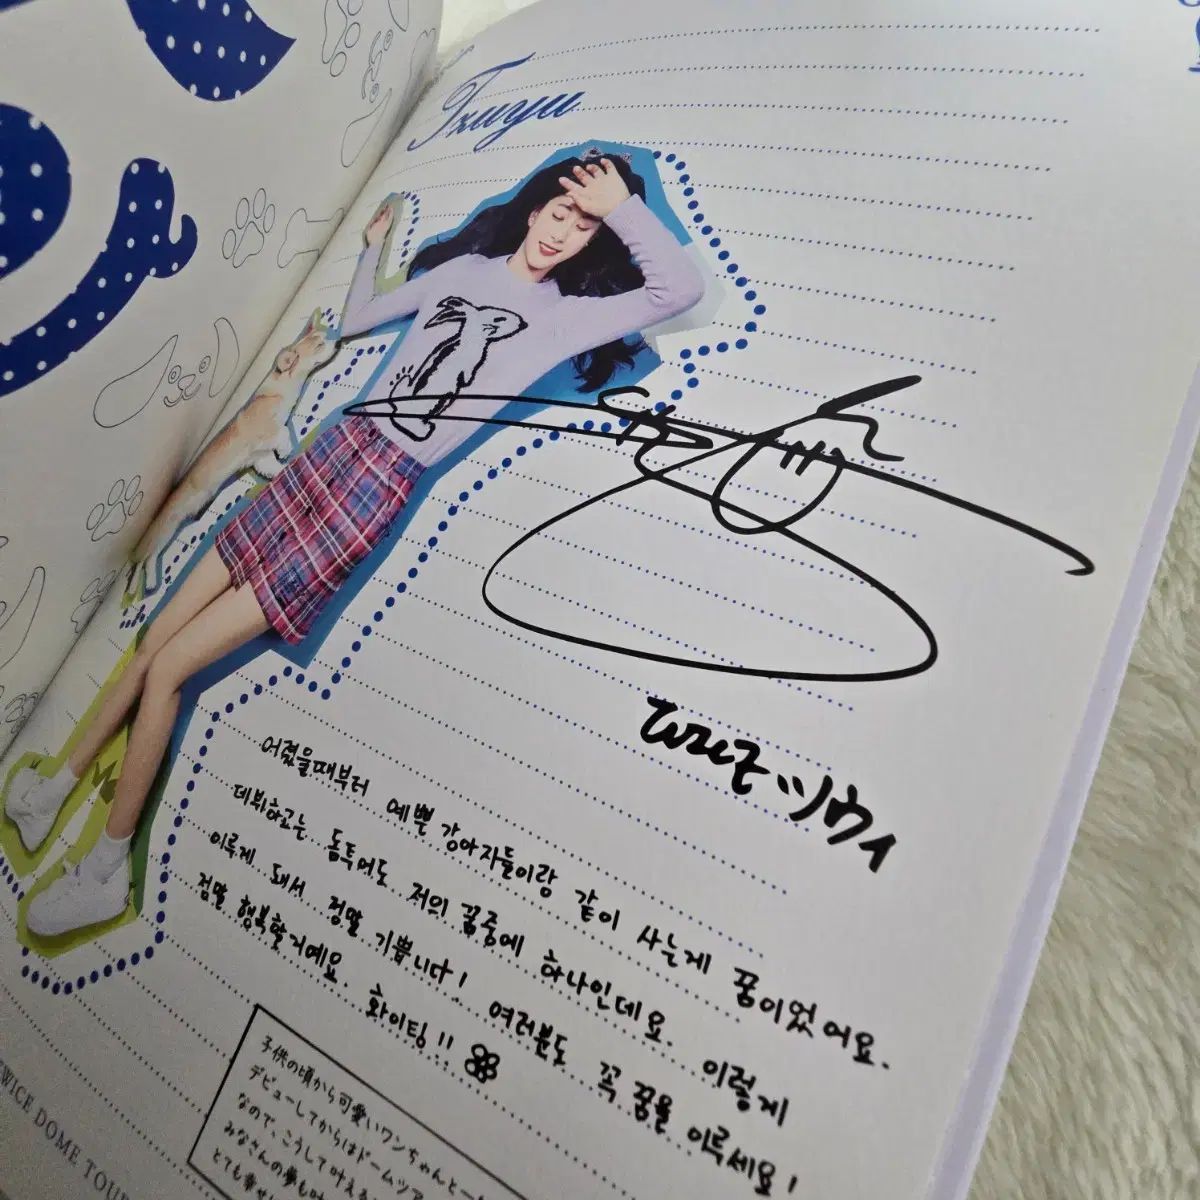 Tzuyu
TWICE ツウィ
어렸을때부터 예쁜 강아지들이랑 같이 사는게 꿈이었어요.
데뷔하고는 돔투어도 저의 꿈중에 하나인데요. 이렇게
이루게 돼서 정말 기쁩니다! 여러분도 꼭 꿈을 이루세요!
정말 행복할거예요. 화이팅!!
子供の頃から可愛いワンちゃんと一
デビューしてからはドームツア
なので、こうして叶える
みなさんの夢も
とても幸せ
TWICE DOME TOUR